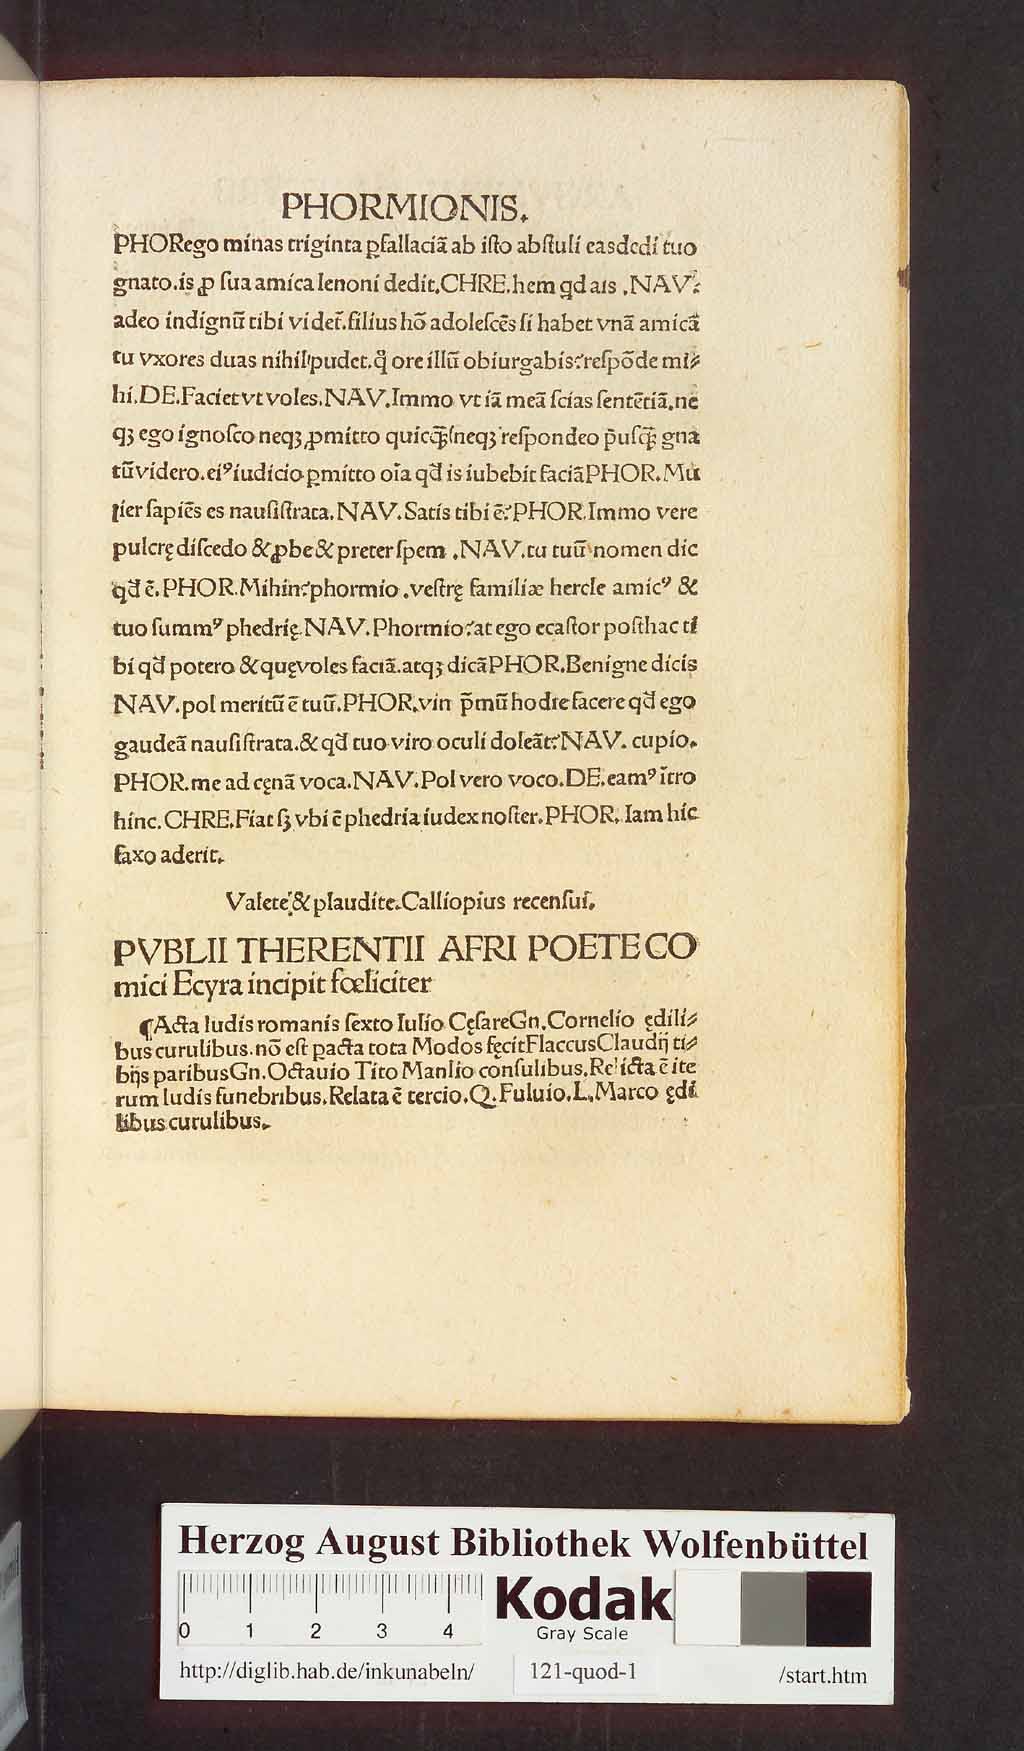 PHORMIONIS.
PHORego minas triginta ꝑfallaciā ab isto abstuli easdedi tuo
gnato.is ꝓ sua amica lenoni dedit.CHRE.hem qd ais .NAV.?
adeo indignū tibi videt̄.filius hō adolescēs si habet vnā amicā
tu vxores duas nihil pudet.q̊ ore illū obiurgabis?respōde mi⸗
hi.DE.Faciet vt voles.NAV.Immo vt iā meā scias sentētiā.ne
qꝫ ego ignosco neqꝫ ꝓmitto quicqꝫ neqꝫ respondeo p̄usqꝫ gna
tū videro.eiꝰ iudicio ꝑmitto oīa qd̄ is iubebit faciāPHOR.Mu
lier sapiēs es nausistrata.NAV.Satis tibi ē?PHOR.Immo vere
pulcrę discedo & ꝓbe & preter spem .NAV.tu tuū nomen dic
qd̄ ē.PHOR.Mihin?phormio .vestrę familiæ hercle amicꝰ &
tuo summꝰ phedrię.NAV.Phormio?at ego ecastor posthac ti
bi qd̄ potero & quęvoles faciā.atqꝫ dicāPHOR.Benigne dicis
NAV.pol meritū ē tuū.PHOR.vin p̄mū hodie facere qd̄ ego
gaudeā nausistrata.& qd̄ tuo viro oculi doleāt?NAV. cupio.
PHOR.me ad cęnā voca.NAV.Pol vero voco.DE.eamꝰ ītro
hinc.CHRE.Fiat sꝫ vbi ē phedria iudex noster.PHOR. Iam hic
faxo aderit.
Valete & plaudite.Calliopius recensui.
PVBLII THERENTII AFRI POETE CO
mici Ecyra incipit fœliciter
¶Acta ludis romanis sexto Iulio CęsareGn.Cornelio ędili⸗
bus curulibus.nō est pacta tota Modos fęcitFlaccusClaudij ti⸗
bijs paribusGn.Octauio Tito Manlio consulibus.Relicta ē ite
rum ludis funebribus.Relata ē tercio.Q.Fuluio.L.Marco ędi
libus curulibus.
Herzog August Bibliothek Wolfenbüttel
0 1 2 3 4
Kodak
Gray Scale
http://diglib.hab.de/inkunabeln/ 121-quod-1 /start.htm